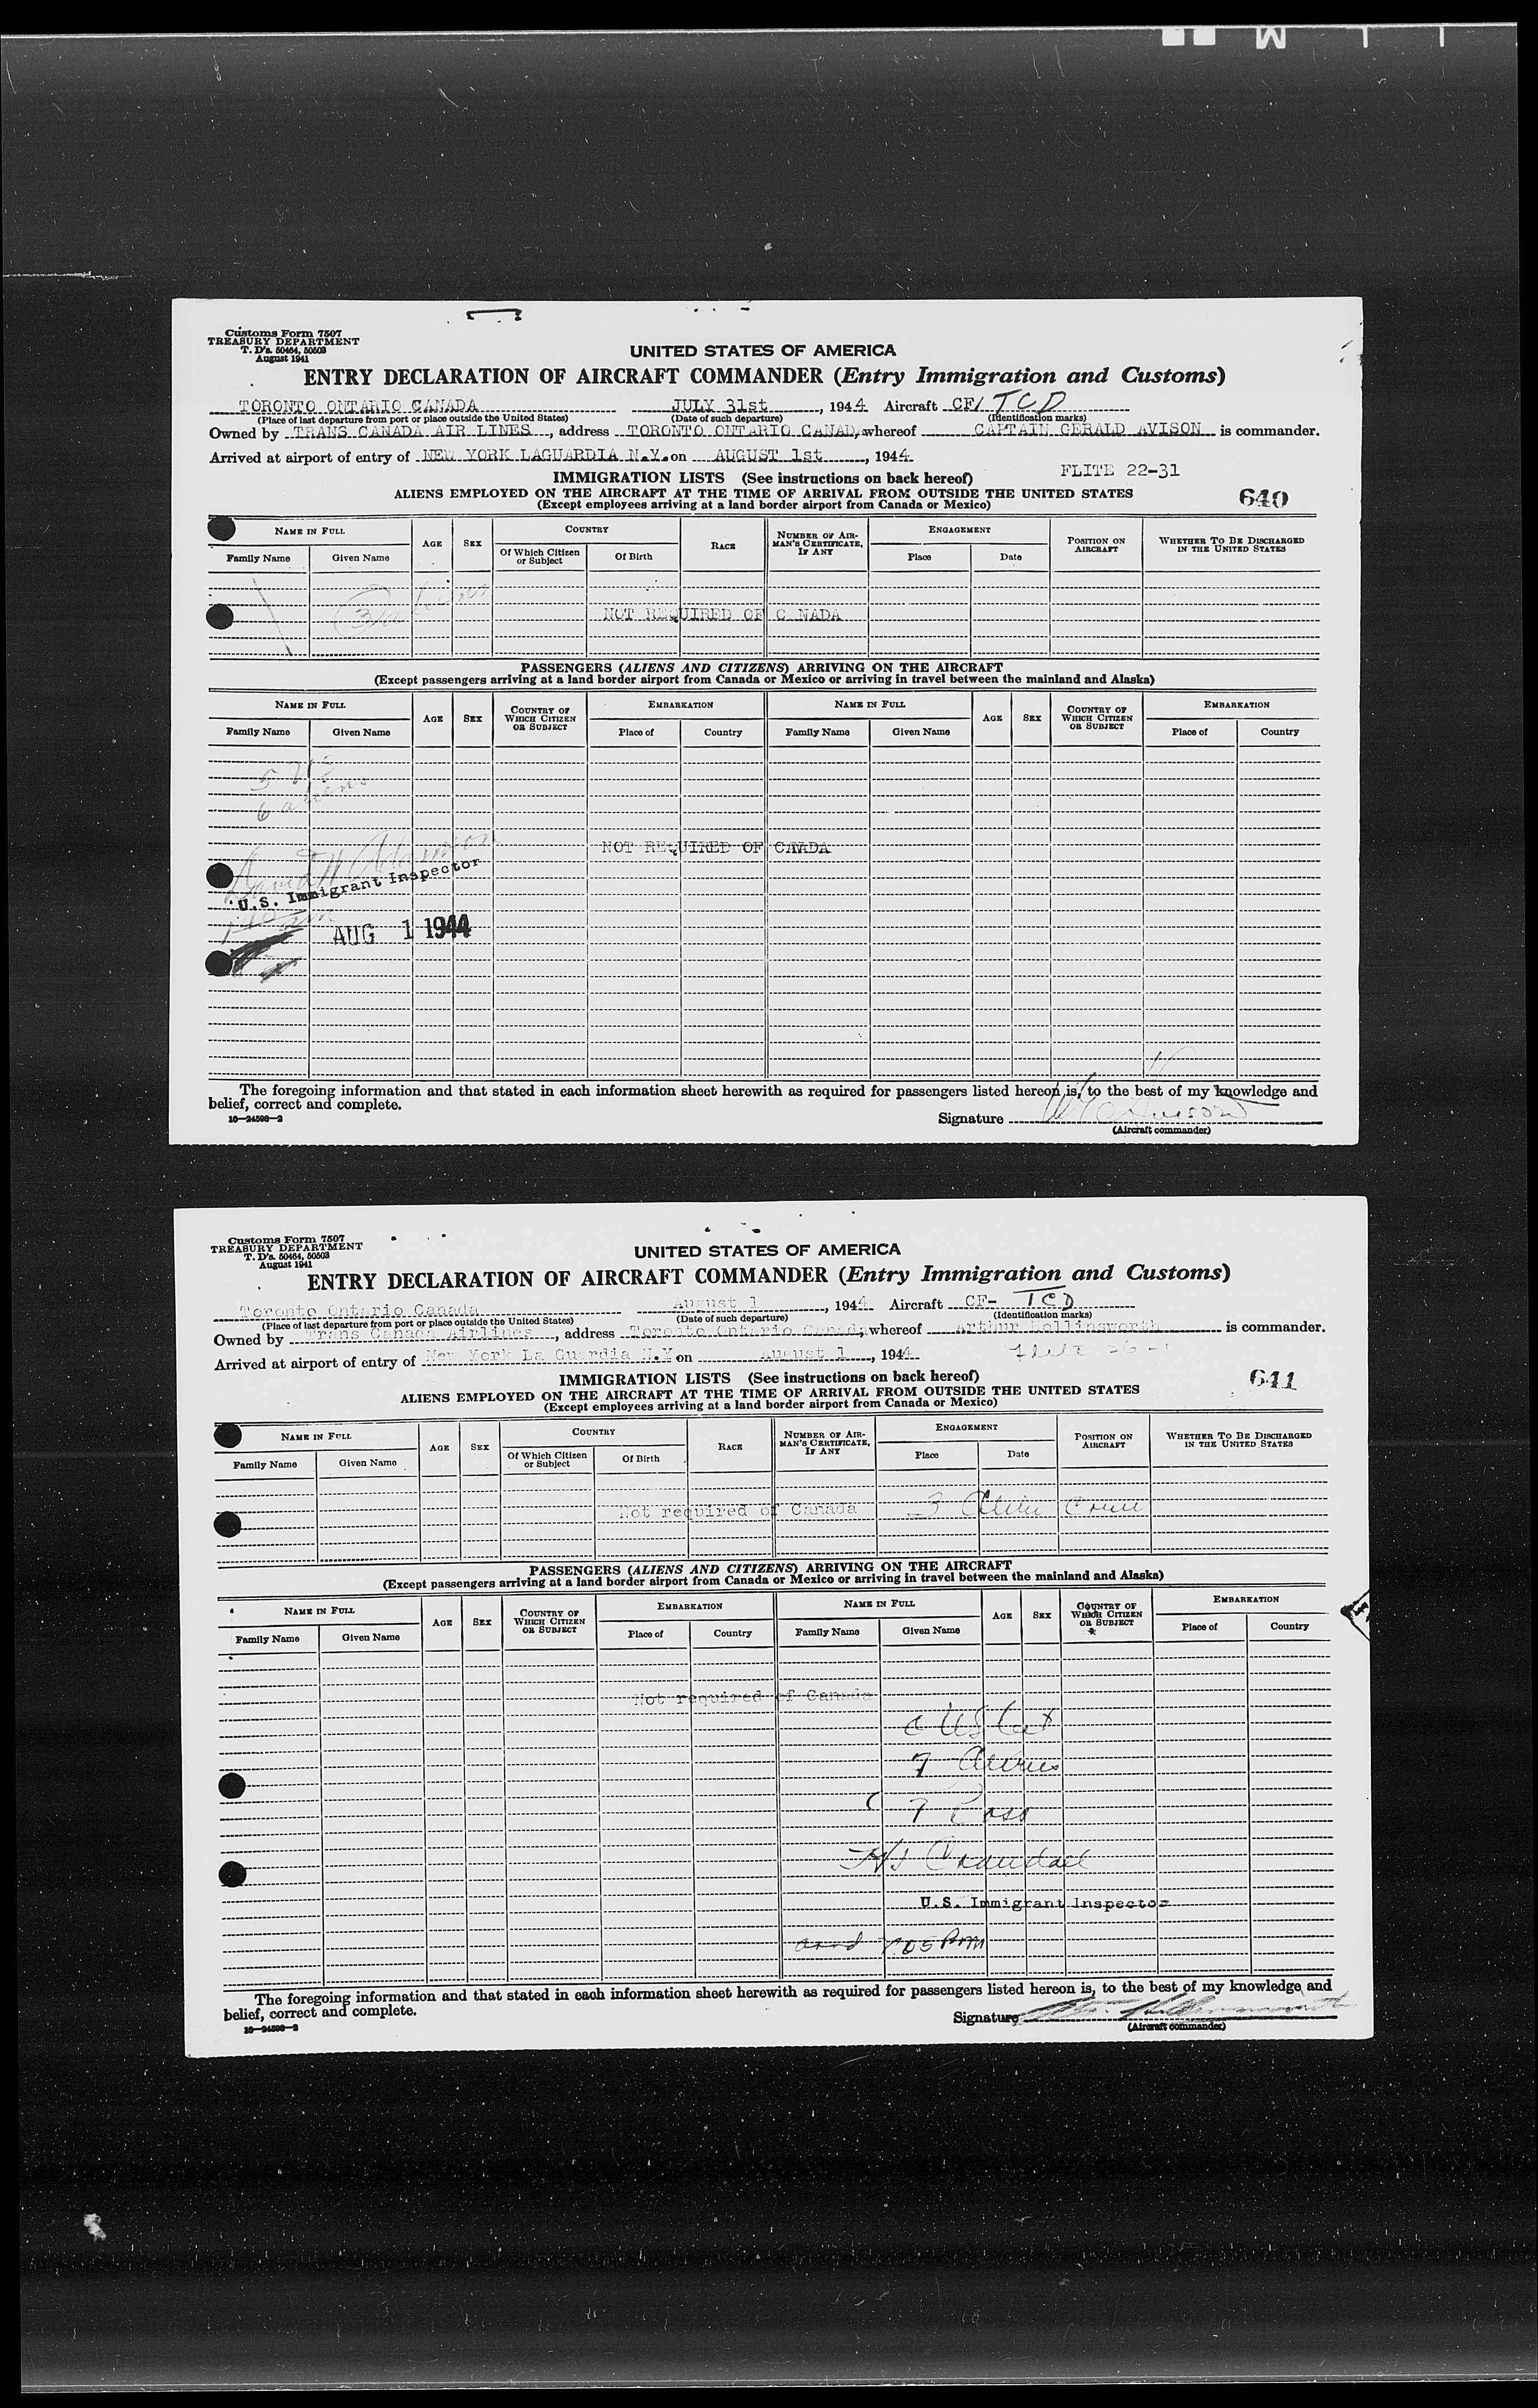 Customs Form 7507
TREASURY DEPARTMENT
T. D's. 50464, 50503
August 1941
UNITED STATES OF AMERICA
ENTRY DECLARATION OF AIRCRAFT COMMANDER (Entry Immigration and Customs)
TORONTO ONTARIO CANADA JULY 31st, 1944 Aircraft CF/ TCD
(Place of last departure from port or place outside the United States) (Date of such departure) (Identification marks)
Owned by TRANS CANADA AIR LINES, address TORONTO ONTARIO CANADA, whereof CAPTAIN GERALD AVISON is commander.
Arrived at airport of entry of NEW YORK LAGUARDIA N.Y. on AUGUST 1st, 1944
FLITE 22-31
IMMIGRATION LISTS (See instructions on back hereof)
640
ALIENS EMPLOYED ON THE AIRCRAFT AT THE TIME OF ARRIVAL FROM OUTSIDE THE UNITED STATES
(Except employees arriving at a land border airport from Canada or Mexico)
NAME IN FULL AGE SEX COUNTRY RACE NUMBER OF AIRMAN'S CERTIFICATE, IF ANY ENGAGEMENT POSITION ON AIRCRAFT WHETHER TO BE DISCHARGED IN THE UNITED STATES
Family Name Given Name Of Which Citizen or Subject Of Birth Place Date
3 aliens
NOT REQUIRED OF C NADA
PASSENGERS (ALIENS AND CITIZENS) ARRIVING ON THE AIRCRAFT
(Except passengers arriving at a land border airport from Canada or Mexico or arriving in travel between the mainland and Alaska)
NAME IN FULL AGE SEX COUNTRY OF WHICH CITIZEN OR SUBJECT EMBARKATION NAME IN FULL AGE SEX COUNTRY OF WHICH CITIZEN OR SUBJECT EMBARKATION
Family Name Given Name Place of Country Family Name Given Name Place of Country
5 US
6 aliens
NOT REQUIRED OF CANADA
David H Adamson
U.S. Immigrant Inspector
AUG 1 1944
The foregoing information and that stated in each information sheet herewith as required for passengers listed hereon is, to the best of my knowledge and
belief, correct and complete.
16—24598—2
Signature
(Aircraft commander)
Customs Form 7507
TREASURY DEPARTMENT
T. D's. 50464, 50503
August 1941
UNITED STATES OF AMERICA
ENTRY DECLARATION OF AIRCRAFT COMMANDER (Entry Immigration and Customs)
Toronto Ontario Canada August 1, 1944 Aircraft CF- TCD
(Place of last departure from port or place outside the United States) (Date of such departure) (Identification marks)
Owned by Trans Canada Airlines, address Toronto Ontario Canada, whereof Arthur Hollinsworth is commander.
Arrived at airport of entry of New York La Guardia N.Y on August 1, 1944
Flite 26-1
IMMIGRATION LISTS (See instructions on back hereof)
641
ALIENS EMPLOYED ON THE AIRCRAFT AT THE TIME OF ARRIVAL FROM OUTSIDE THE UNITED STATES
(Except employees arriving at a land border airport from Canada or Mexico)
NAME IN FULL AGE SEX COUNTRY RACE NUMBER OF AIRMAN'S CERTIFICATE, IF ANY ENGAGEMENT POSITION ON AIRCRAFT WHETHER TO BE DISCHARGED IN THE UNITED STATES
Family Name Given Name Of Which Citizen or Subject Of Birth Place Date
Not required of Canada 3 Alien Crew
PASSENGERS (ALIENS AND CITIZENS) ARRIVING ON THE AIRCRAFT
(Except passengers arriving at a land border airport from Canada or Mexico or arriving in travel between the mainland and Alaska)
NAME IN FULL AGE SEX COUNTRY OF WHICH CITIZEN OR SUBJECT EMBARKATION NAME IN FULL AGE SEX COUNTRY OF WHICH CITIZEN OR SUBJECT EMBARKATION
Family Name Given Name Place of Country Family Name Given Name Place of Country
Not required of Canada
US Cit
7 Aliens
7 Pass
Crandall
U.S. Immigrant Inspector
arrd 705 PM
The foregoing information and that stated in each information sheet herewith as required for passengers listed hereon is, to the best of my knowledge and
belief, correct and complete.
16—24598—2
Signature
(Aircraft commander)